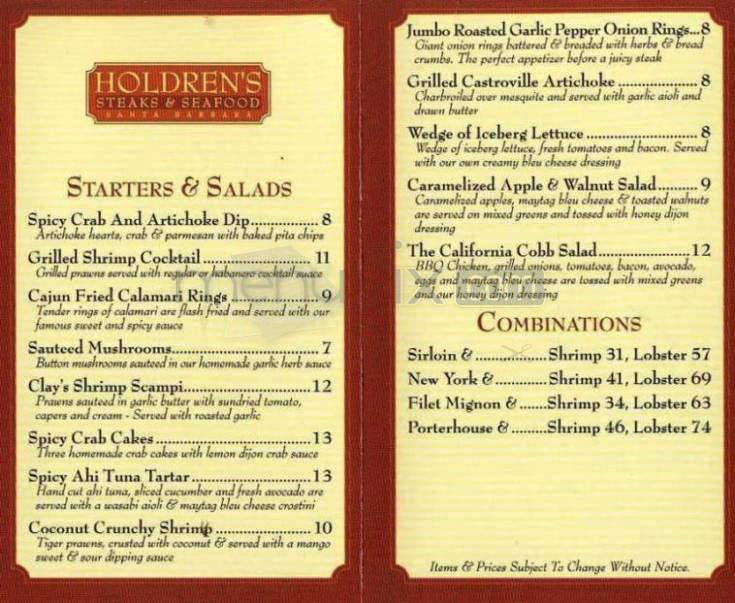 HOLDREN'S
STEAKS & SEAFOOD
SANTA BARBARA
STARTERS & SALADS
Spicy Crab And Artichoke Dip.............. 8
Artichoke hearts, crab & parmesan with baked pita chips
Grilled Shrimp Cocktail ....................... 11
Grilled prawns served with regular or habanero cocktail suace
Cajun Fried Calamari Rings .................. 9
Tender rings of calamari are flash fried and served with our
famous sweet and spicy sauce
Sauteed Mushrooms.............................. 7
Button mushrooms sauteed in our homemade garlic herb sauce
Clay's Shrimp Scampi..........................12
Prawns sauteed in garlic butter with sundried tomato,
capers and cream - Served with roasted garlic
Spicy Crab Cakes ................................13
Three homemade crab cakes with lemon dijon crab sauce
Spicy Ahi Tuna Tartar .........................13
Hand cut ahi tuna, sliced cucumber and fresh avocado are
served with a wasabi aioli & maytag bleu cheese crostini
Coconut Crunchy Shrimp ....................10
Tiger prawns, crusted with coconut & served with a mango
sweet & sour dipping sauce
Jumbo Roasted Garlic Pepper Onion Rings...8
Giant onion rings battered & breaded with herbs & bread
crumbs. The perfect appetizer before a juicy steak
Grilled Castroville Artichoke ................. 8
Charbroiled over mesquite and served with garlic aioli and
drawn butter
Wedge of Iceberg Lettuce ....................... 8
Wedge of iceberg lettuce, fresh tomatoes and bacon. Served
with our own creamy bleu cheese dressing
Caramelized Apple & Walnut Salad......... 9
Caramelized apples, maytag bleu cheese & toasted walnuts
are served on mixed greens and tossed with honey dijon
dressing
The California Cobb Salad....................12
BBQ Chicken, grilled onions, tomatoes, bacon, avocado,
eggs and maytag bleu cheese are tossed with mixed greens
and our honey dijon dressing
COMBINATIONS
Sirloin & ..................Shrimp 31, Lobster 57
New York &.............Shrimp 41, Lobster 69
Filet Mignon & .......Shrimp 34, Lobster 63
Porterhouse & .........Shrimp 46, Lobster 74
Items & Prices Subject To Change Without Notice.